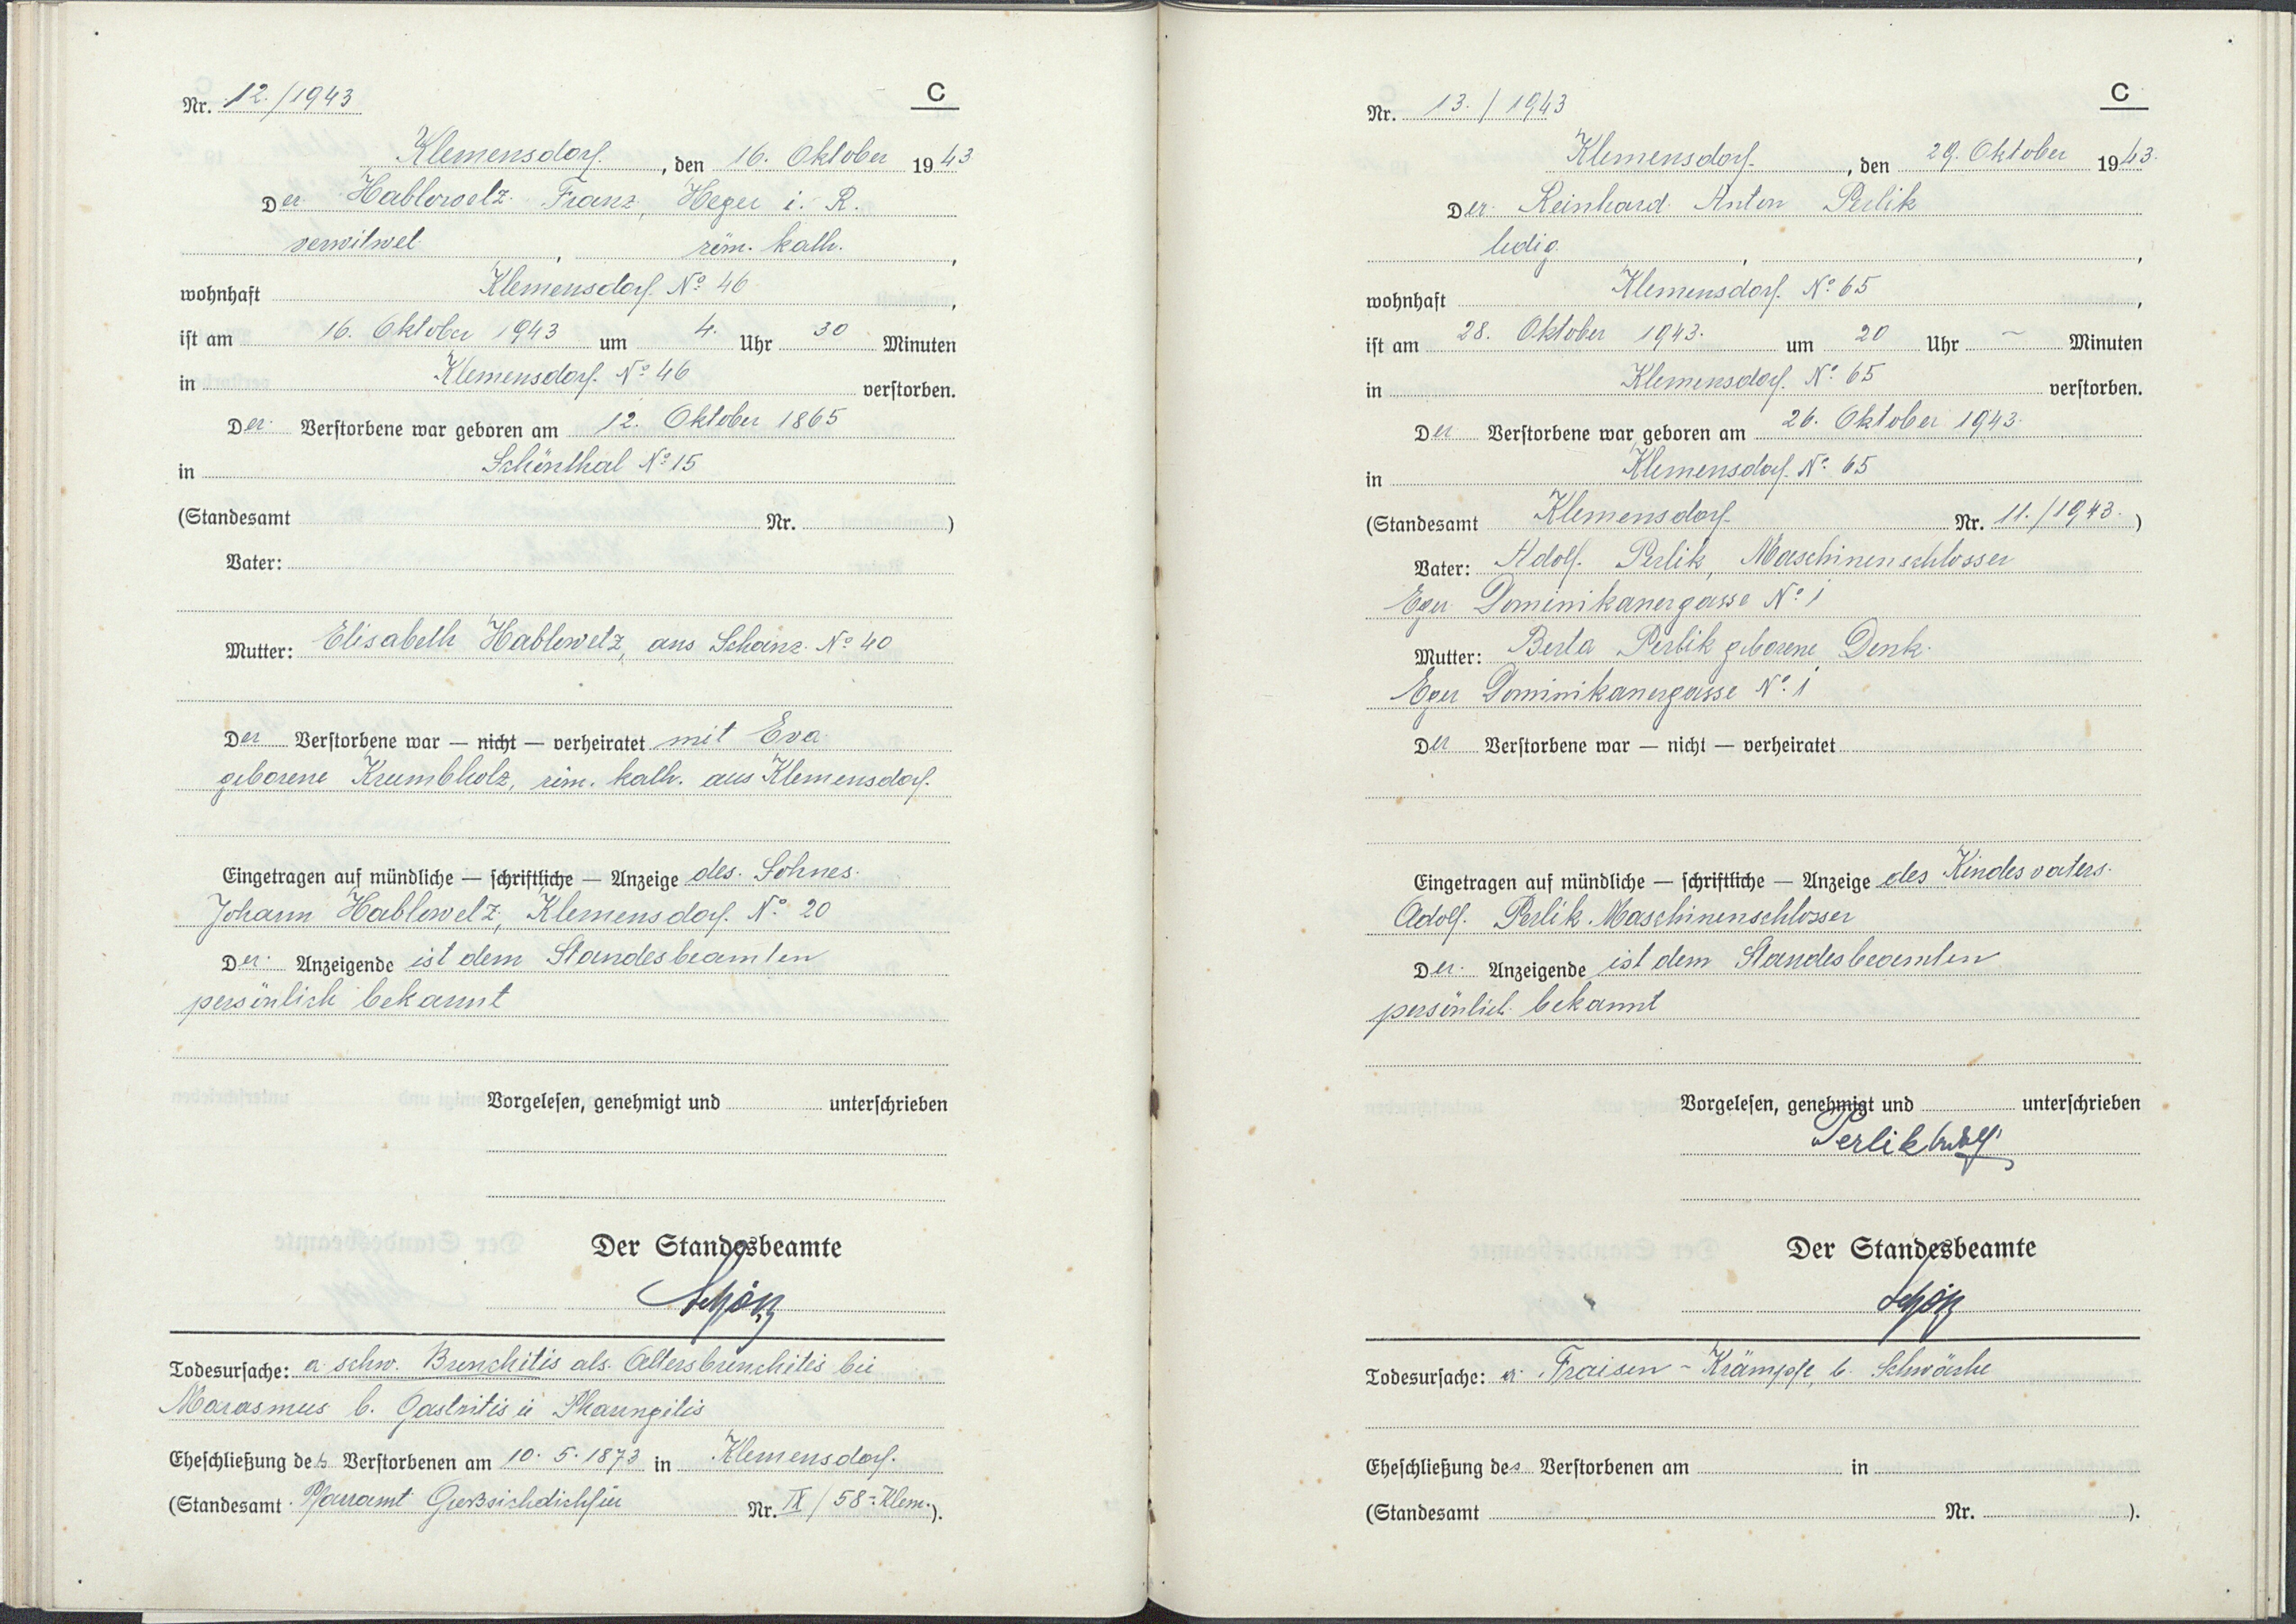 Nr. 12./1943
C
Klemensdorf, den 16. Oktober 1943
Der Hablowetz Franz, Heger i. R.
verwitwet, röm. kath.,
wohnhaft Klemensdorf. No 46,
ist am 16. Oktober 1943 um 4. Uhr 30 Minuten
in Klemensdorf. No 46 verstorben.
Der Verstorbene war geboren am 12. Oktober 1865
in Schönthal No 15
(Standesamt Nr. )
Vater:
Mutter: Elisabeth Hablowetz, aus Schanz No 40
Der Verstorbene war — nicht — verheiratet mit Eva
geborene Krumbholz, röm. kath. aus Klemensdorf.
Eingetragen auf mündliche — schriftliche — Anzeige des Sohnes
Johann Hablowetz, Klemensdorf. No 20
Der Anzeigende ist dem Standesbeamten
persönlich bekannt
Vorgelesen, genehmigt und unterschrieben
Der Standesbeamte
Todesursache: a schw. Bronchitis als Altersbronchitis bei
Marasmus b. Gastritis u Pharyngitis
Eheschließung des Verstorbenen am 10. 5. 1873 in Klemensdorf.
(Standesamt Pfarramt Nr. IX / 58 - Klem.).
Nr. 13. / 1943
C
Klemensdorf, den 29. Oktober 1943.
Der Reinhard Anton Perlik
ledig, ,
wohnhaft Klemensdorf. No 65,
ist am 28. Oktober 1943. um 20 Uhr — Minuten
in Klemensdorf. No 65 verstorben.
Der Verstorbene war geboren am 26. Oktober 1943.
in Klemensdorf. No 65
(Standesamt Klemensdorf. Nr. 11./1943.)
Vater: Adolf Perlik, Maschinenschlosser
Eger Dominikanergasse No 1
Mutter: Berta Perlik geborene Denk.
Eger Dominikanergasse No 1
Der Verstorbene war — nicht — verheiratet
Eingetragen auf mündliche — schriftliche — Anzeige des Kindesvaters
Adolf Perlik. Maschinenschlosser
Der Anzeigende ist dem Standesbeamten
persönlich bekannt
Vorgelesen, genehmigt und unterschrieben
Perlik Adolf
Der Standesbeamte
Todesursache: a. Fraisen - Krämpfe, b. Schwäche
Eheschließung des Verstorbenen am in
(Standesamt Nr. ).